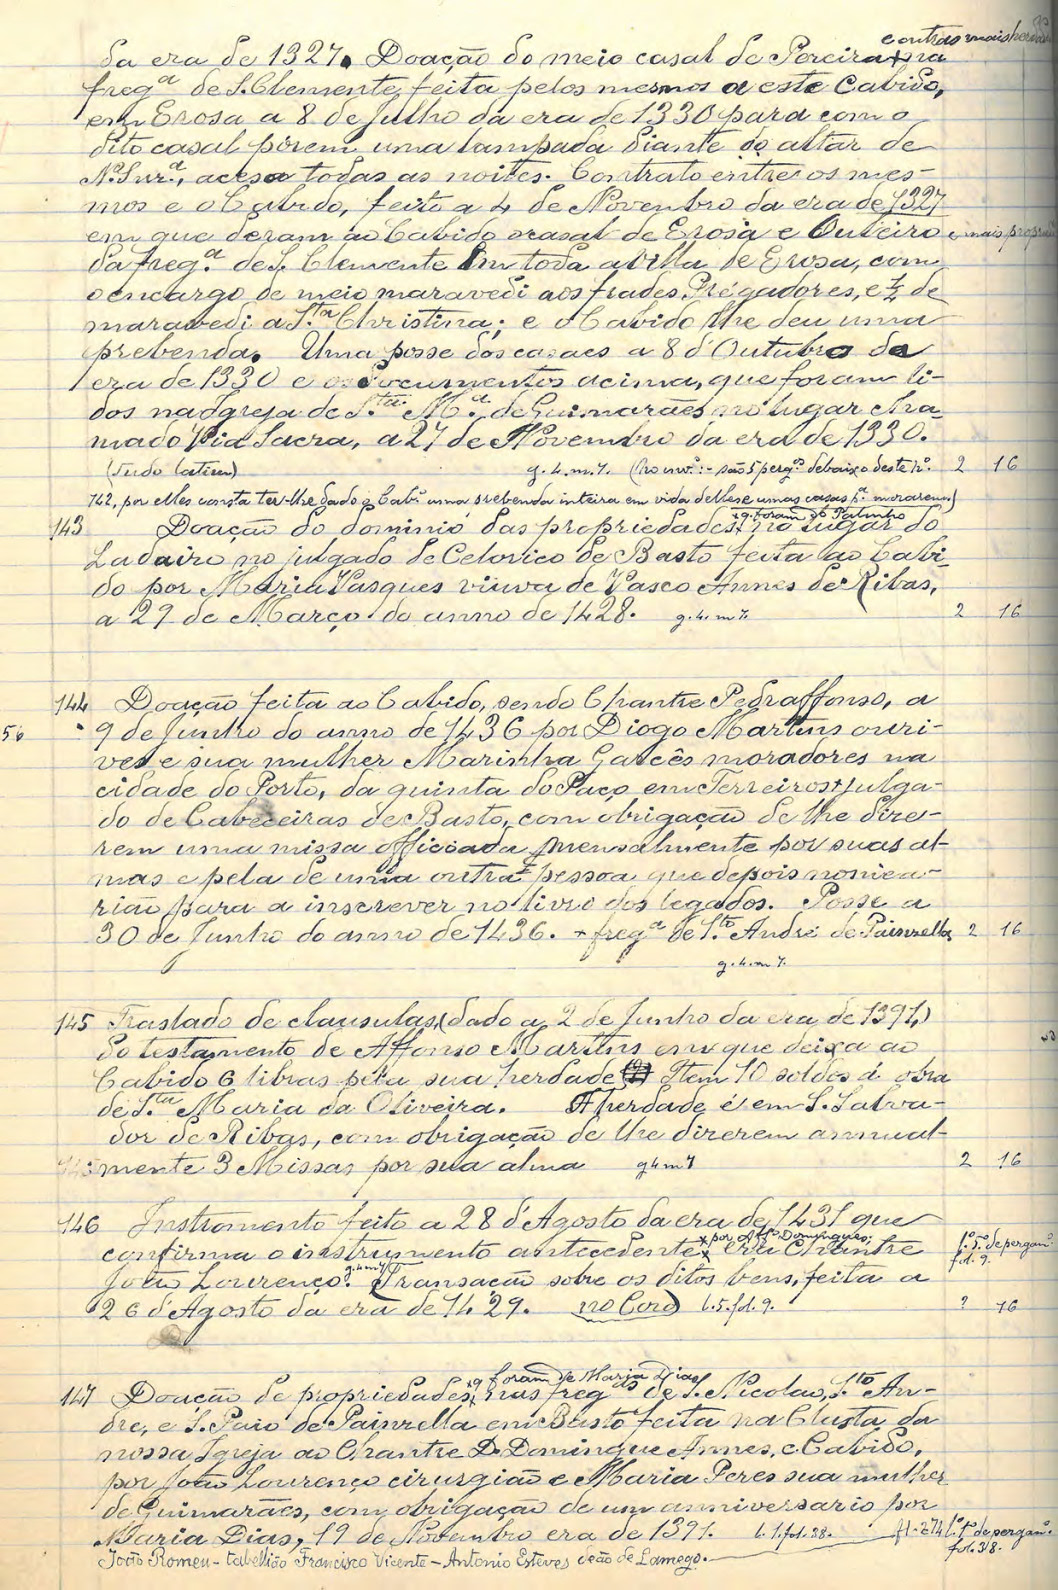 e outras mais herdades
da era de 1327. Doação do meio casal de Pereira + na
freg.ª de S. Clemente, feita pelos mesmos a este Cabido,
em Erosa a 8 de Julho da era de 1330 para com o
dito casal pôrem uma lampada diante do altar de
N.ª Snr.ª, acesa todas as noites. Contrato entre os mes-
mos e o Cabido, feito a 4 de Novembro da era de 1327
em que deram ao Cabido o casal de Erosa e Outeiro e mais propried
da freg.ª de S. Clemente em toda a Villa de Erosa, com
o encargo de meio maravedi aos frades Prégadores, e ½ de
maravedi a S.ta Christina; e o Cabido lhe deu uma
prebenda. Uma posse dos casaes a 8 d'Outubro da
era de 1330 e os documentos acima, que foram li-
dos na Igreja de S.ta M.ª de Guimarães no lugar cha-
mado Via Sacra, a 27 de Novembro da era de 1330.
(tudo latim) g. 4. m. 7. (No inv.º:- são 5 perg.os debaixo deste n.º 2 16
142, por elles consta ter-lhe dado o Cab.º uma prebenda inteira em vida delles e umas casas p.ª morarem)
+ q. foram do Palinho
143 Doação do dominio das propriedades + no lugar do
Ladairo no julgado de Celorico de Basto feita ao Cabi-
do por Maria Vasques viuva de Vasco Annes de Ribas,
a 29 de Março do anno de 1428. g. 4. m 7. 2 16
144 Doação feita ao Cabido, sendo Chantre Pedraffonso, a
56 9 de Junho do anno de 1436 por Diogo Martins ouri-
ves e sua mulher Marinha Garcês moradores na
cidade do Porto, da quinta do Paço em Terreiros + julga-
do de Cabeceiras de Basto, com obrigação de lhe dize-
rem uma missa officiada mensalmente por suas al-
mas e pela de uma outra pessoa que depois nomea-
rião para a inscrever no livro dos legados. Posse a
30 de Junho do anno de 1436. + freg.ª de S.to André de Painzella 2 16
g. 4. m 7.
145 Traslado de clausulas, (dado a 2 de Junho da era de 1391,)
do testamento de Affonso Martins em que deixa ao
Cabido 6 libras pela sua herdade Item 10 soldos á obra
de S.ta Maria da Oliveira. A herdade é em S. Salva-
dor de Ribas, com obrigação de lhe dizerem annual-
mente 3 Missas por sua alma g 4 m 7 2 16
146 Instromento feito a 28 d'Agosto da era de 1431 que
x por Aff.º Domingues;
confirma o instrumento antecedente x era Chantre l.º 5.º de pergam.º
fol. 9.
João Lourenço. g. 4 m 7 Transacção sobre os ditos bens, feita a
26 d'Agosto da era de 1429. no Coro) L. 5. fol. 9. 2 16
+ q foram de Maria Dias
147 Doação de propriedades, + nas freg.as de S. Nicolao, S.to An-
dre, e S. Paio de Painzella em Basto feita na Clasta da
nossa Igreja ao Chantre D. Domingue Annes, e Cabido,
por João Lourenço cirurgião e Maria Peres sua mulher
de Guimarães, com obrigação de um anniversario por
Maria Dias, 19 de Novembro era de 1391. L. 1. fol. 38. fl-274 l.º 1.º de pergam.º
fol. 38.
João Romeu - tabellião Francisco Vicente - Antonio Esteves deão de Lamego.